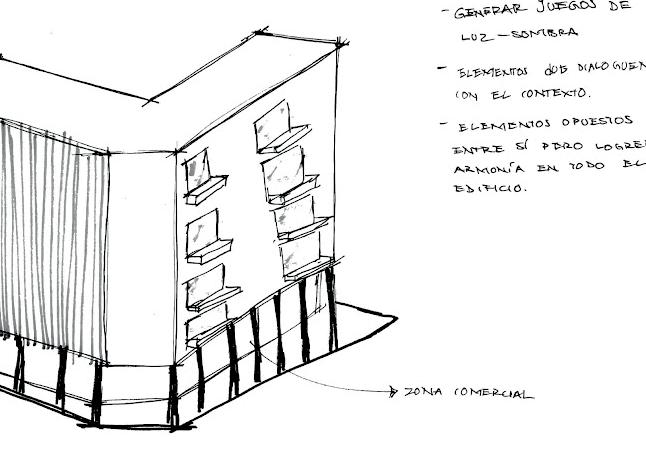 - GENERAR JUEGOS DE
LUZ - SOMBRA
- ELEMENTOS QUE DIALOGUEN
CON EL CONTEXTO.
- ELEMENTOS OPUESTOS
ENTRE SÍ PERO LOGREN
ARMONÍA EN TODO EL
EDIFICIO.
ZONA COMERCIAL